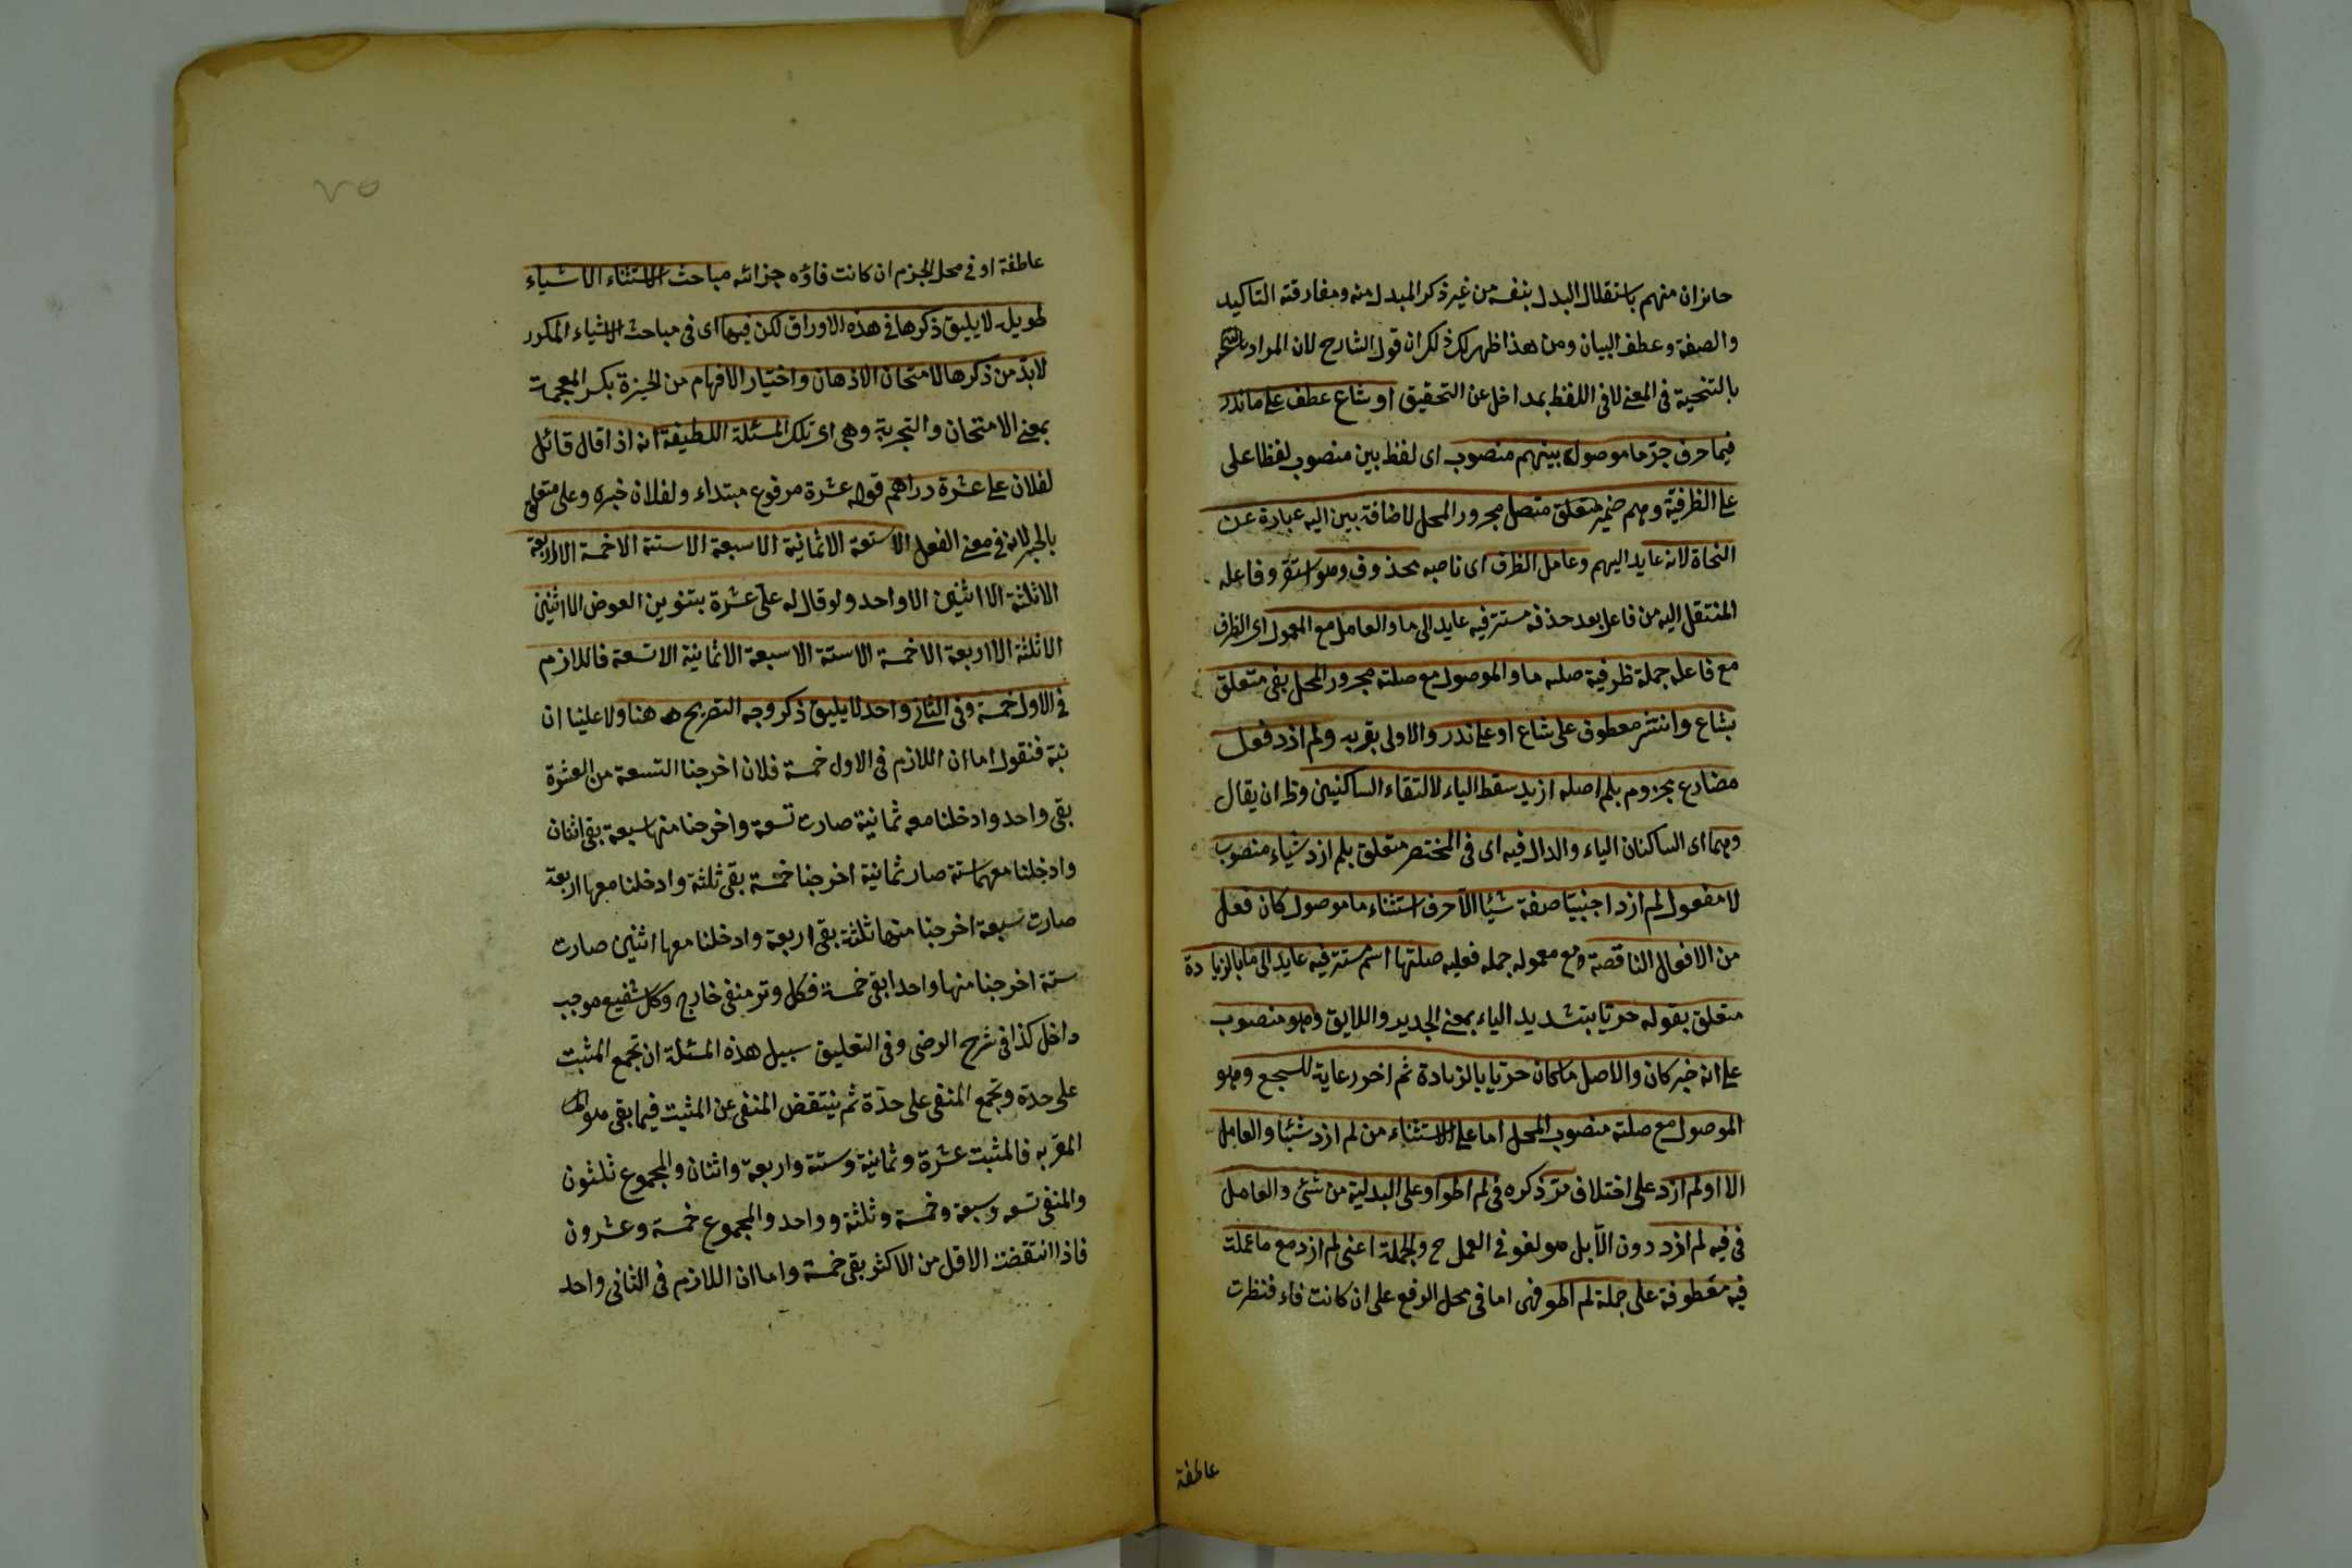 حائزان منهم باستقلال البدل بنفسه من غير ذكر المبدل منه ومفارقته التاكيد
والصفة وعطف البيان ومن هذا ظهر لك ان قول الشارح لان المراد
بالتنحية في المعنى لا في اللفظ بمداخل عن التحقيق او شاع عطف على ما ندر
فيما حرف جر ما موصولة بينهم منصوب اى لفظ بين منصوب لفظا على
على الظرفية وهم ضمير متعلق متصل مجرور المحل لاضافة بين اليه عبارة عن
النحاة لانه عايد اليهم وعامل الظرف اى ناصبه محذوف وهو استقر وفاعله
المنتقل اليه من فاعل بعد حذفه مستتر فيه عايد الى ما والعامل مع المعمول اى الظرف
مع فاعله جملة ظرفية صلة ما والموصول مع صلته مجرور المحل بفى متعلق
بشاع وانتشر معطوف على شاع او على ندر والاولى بقربه ولم ازد فعل
مضارع مجزوم بلم اصله ازيد سقط الياء لالتقاء الساكنين وظ ان يقال
وهما اى الساكنان الياء والدال فيه اى فى المختصر متعلق بلم ازد شياء منصوب
لا مفعول لم ازد اجنبيا صفة شيئا الا حرف استثناء ما موصول كان فعل
من الافعال الناقصة ومع معموله جمله فعليه صلتها اسم مستتر فيه عايد الى ما بالزيادة
متعلق بقوله حريا بتشديد الياء بمعنى الجدير واللايق وهو منصوب
على انه خبر كان والاصل ما كان حريا بالزيادة ثم اخر رعاية للسجع وهو
الموصول مع صلته منصوب المحل اما على الاستثناء من لم ازد شيئا والعامل
الا او لم ازد على اختلاف مر ذكره فى لم اطو او على البدلية من شئ والعامل
فى فيه لم ازد دون الا بل هو لغو في العمل ح والجملة اعنى لم ازد مع ما عملت
فيه معطوفة على جملة لم اطو فهى اما فى محل الرفع على ان كانت فاء فنظرت
عاطفة
٧٥
عاطفة او في محل الجزم ان كانت فاؤه جزائه مباحث الاستثناء الاشياء
طويل لا يليق ذكرها في هذه الاوراق لكن فيها اى فى مباحث الاشياء المكور
لابد من ذكرها لامتحان الاذهان واختيار الافهام من الخبرة بكسر المعجمة
بمعنى الامتحان والتجربة وهى اى تلك المسئلة اللطيفة انه اذا قال قائل
لفلان على عشرة دراهم قوله عشرة مرفوع مبتداء ولفلان خبره وعلى متعلق
بالخبر لانه في معنى الفعل الا تسعة الا ثمانية الا سبعة الا ستة الا خمسة الا اربعة
الا ثلثة الا اثنين الا واحد ولو قال له على عشرة بتنوين العوض الا اثنين
الا ثلثة الا اربعة الا خمسة الا ستة الا سبعة الا ثمانية الا تسعة فاللازم
في الاول خمسة وفى الثانى واحد لا يليق ذكر وجه التصريح ههنا ولا علينا ان
نبه فنقول اما ان اللازم فى الاول خمسة فلان اخرجنا التسعة من العشرة
بقى واحد وادخلنا معه ثمانية صارت تسعة واخرجنا منها سبعة بقى اثنان
وادخلنا معهما ستة صار ثمانية اخرجنا خمسة بقى ثلثة وادخلنا معها اربعة
صارت سبعة اخرجنا منها ثلثة بقى اربعة وادخلنا معها اثنين صارت
ستة اخرجنا منها واحدا بقى خمسة فكل وتر منفى خارج وكل شفيع موجب
داخل كذا فى شرح الرضى وفى التعليق سبيل هذه المسئلة ان تجمع المثبت
على حدة وتجمع المنفى على حدة ثم ينتقض المنفى عن المثبت فيما بقى هو
المقر به فالمثبت عشرة وثمانية وستة واربعة واثنان والمجموع ثلثون
والمنفى تسعه وسبعة وخمسة وثلثة وواحد والمجموع خمسة وعشرون
فاذا انتقضت الاقل من الاكثر بقى خمسة واما ان اللازم فى الثانى واحد